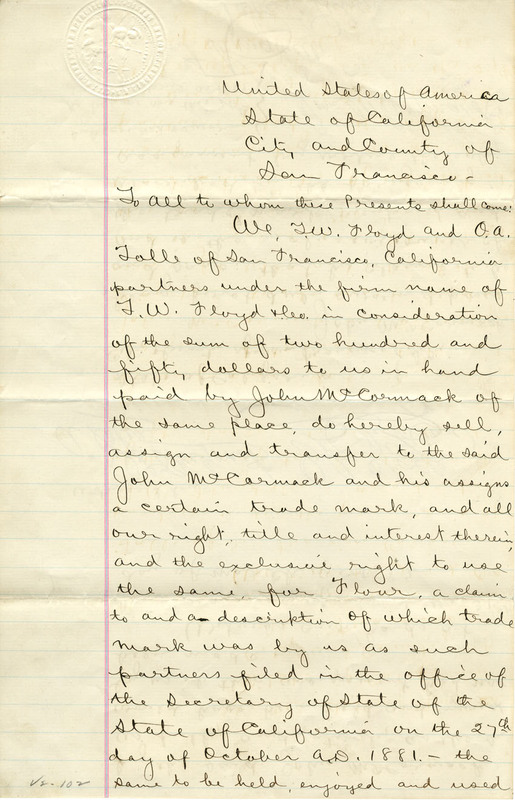 United States of America
State of California
City and County of
San Francisco -
To All to whom these Presents shall come:
We, T.W. Floyd and O.A.
Tolle of San Francisco, California
partners under the firm name of
T. W. Floyd & Co. in consideration
of the sum of two hundred and
fifty dollars to us in hand
paid by John McCormack of
the same place, do hereby sell,
assign and transfer to the said
John McCormack and his assigns
a certain trade mark, and all
our right, title and interest therein,
and the exclusive right to use
the same, for Flour, a claim
to and a description of which trade
mark was by us as such
partners filed in the office of
the Secretary of State of the
State of California on the 27th
day of October A.D. 1881. - the
same to be held, enjoyed and used
V2-102